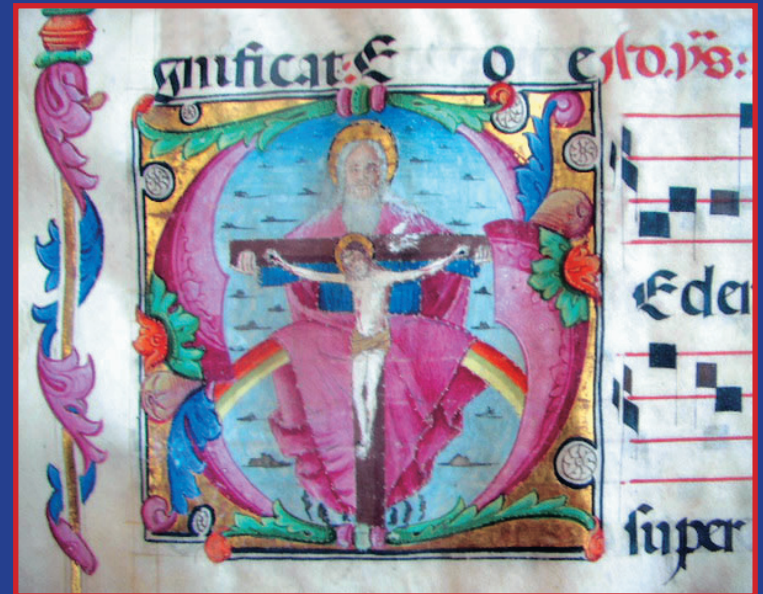 gnificat: E o e Ad. ps̄:
Eden
super